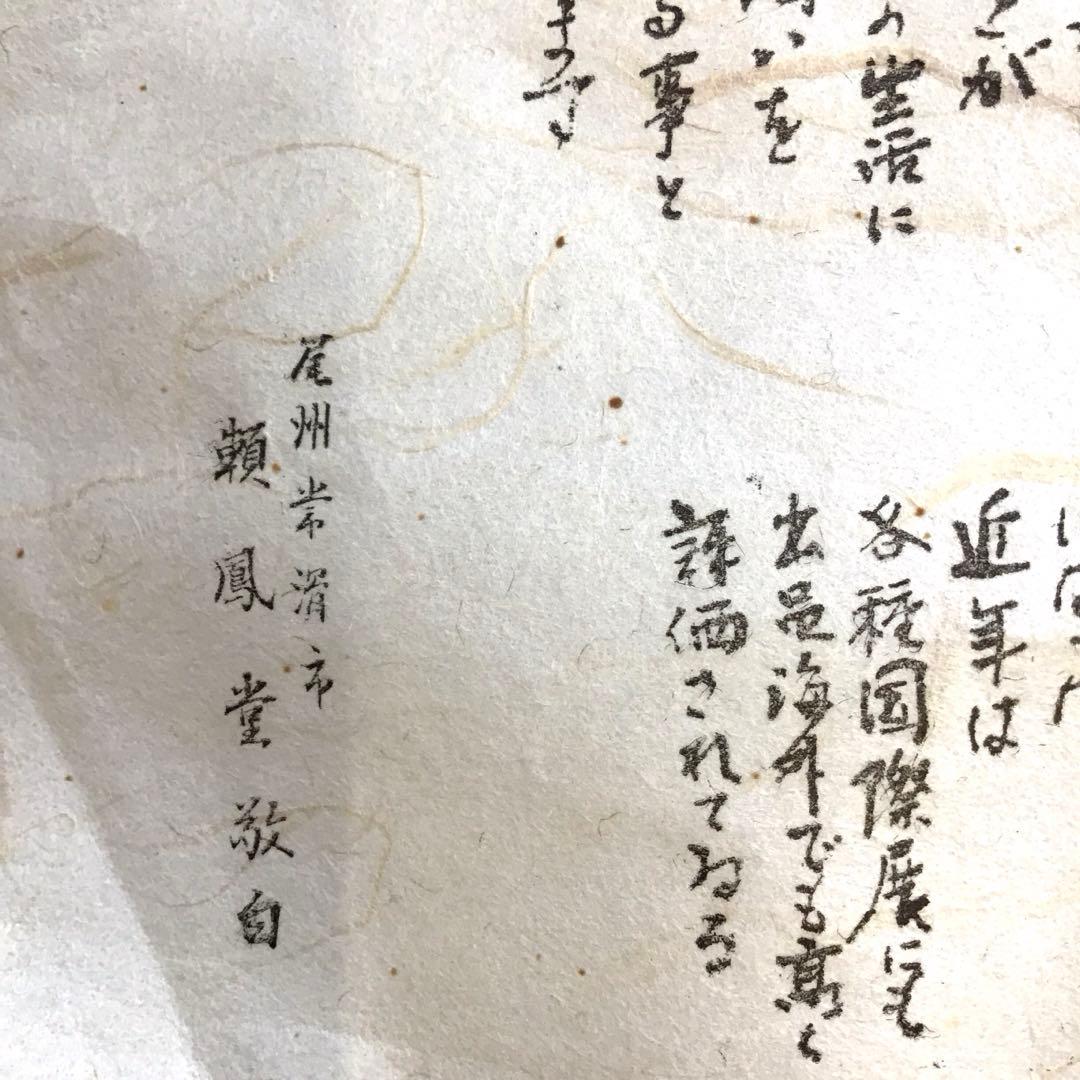 が
の生活に
いを
る事と
ます
近年は
各種国際展にも
出品海外でも高く
評価されてゐる
尾州常滑市
頼鳳堂敬白